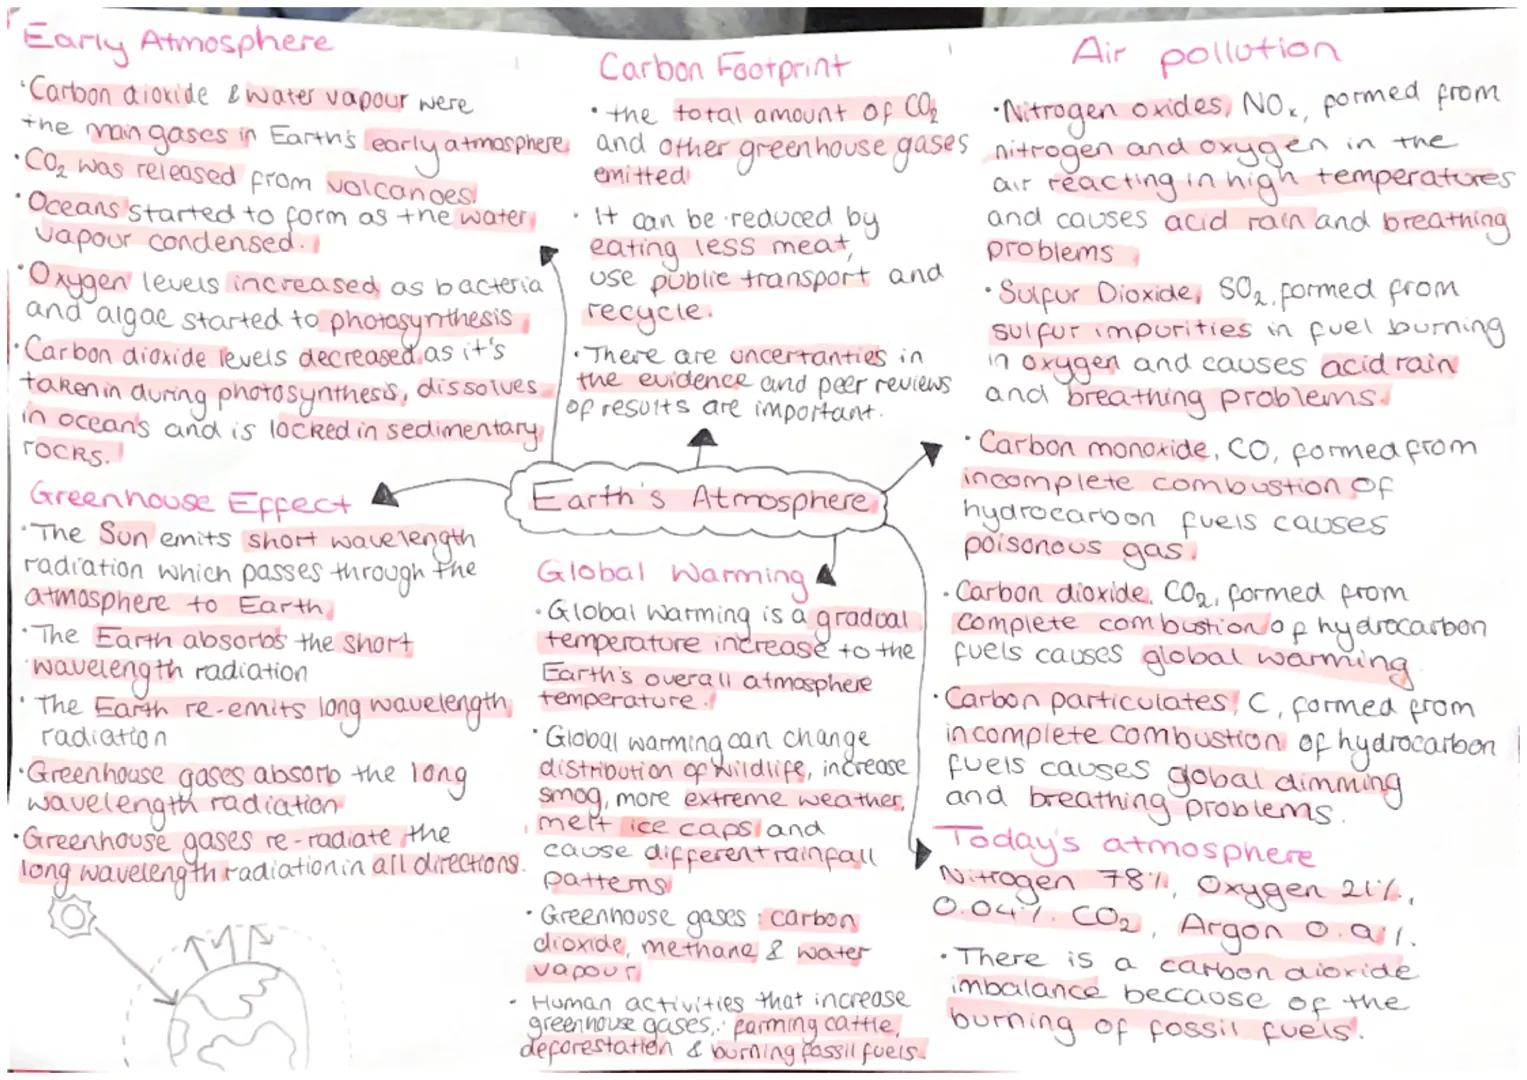 Early Atmosphere
·Carbon dioxide & water vapour were
the main gases in Earth's early atmosphere
·CO₂ was released from volcanoes
·Oceans started to form as the water
vapour condensed.
·Oxygen levels increased as bacteria
and algae started to photosynthesis
·Carbon dioxide levels decreased as it's
taken in during photosynthesis, dissolves
in ocean's and is locked in sedimentary
rocks.
Greenhouse Effect
·The Sun emits short wavelength
radiation which passes through the
atmosphere to Earth
·The Earth absorbs the short
wavelength radiation
·The Earth re-emits long wavelength
radiation
·Greenhouse gases absorb the long
wavelength radiation
·Greenhouse gases re-radiate the
long wavelength radiation in all directions.
Carbon Footprint
·the total amount of CO₂
and other greenhouse gases
emitted
·It can be reduced by
eating less meat,
use public transport and
recycle.
·There are uncertanties in
the evidence and peer reviews
of results are important.
Earth's Atmosphere
Global Warming
·Global warming is a gradual
temperature increase to the
Earth's overall atmosphere
temperature.
·Global warming can change
distribution of wildlife, increase
smog, more extreme weather,
melt ice caps and
cause different rainfall
patterns
·Greenhouse gases: carbon
dioxide, methane & water
vapour
·Human activities that increase
greenhouse gases: farming cattle,
deforestation & burning fossil fuels.
Air pollution
·Nitrogen oxides, NOₓ, formed from
nitrogen and oxygen in the
air reacting in high temperatures
and causes acid rain and breathing
problems
·Sulfur Dioxide, SO₂, formed from
sulfur impurities in fuel burning
in oxygen and causes acid rain
and breathing problems.
·Carbon monoxide, CO, formed from
incomplete combustion of
hydrocarbon fuels causes
poisonous gas.
·Carbon dioxide, CO₂, formed from
complete combustion of hydrocarbon
fuels causes global warming
·Carbon particulates, C, formed from
incomplete combustion of hydrocarbon
fuels causes global dimming
and breathing problems.
Today's atmosphere
Nitrogen 78%, Oxygen 21%,
0.04% CO₂, Argon 0.9%.
·There is a carbon dioxide
imbalance because of the
burning of fossil fuels.